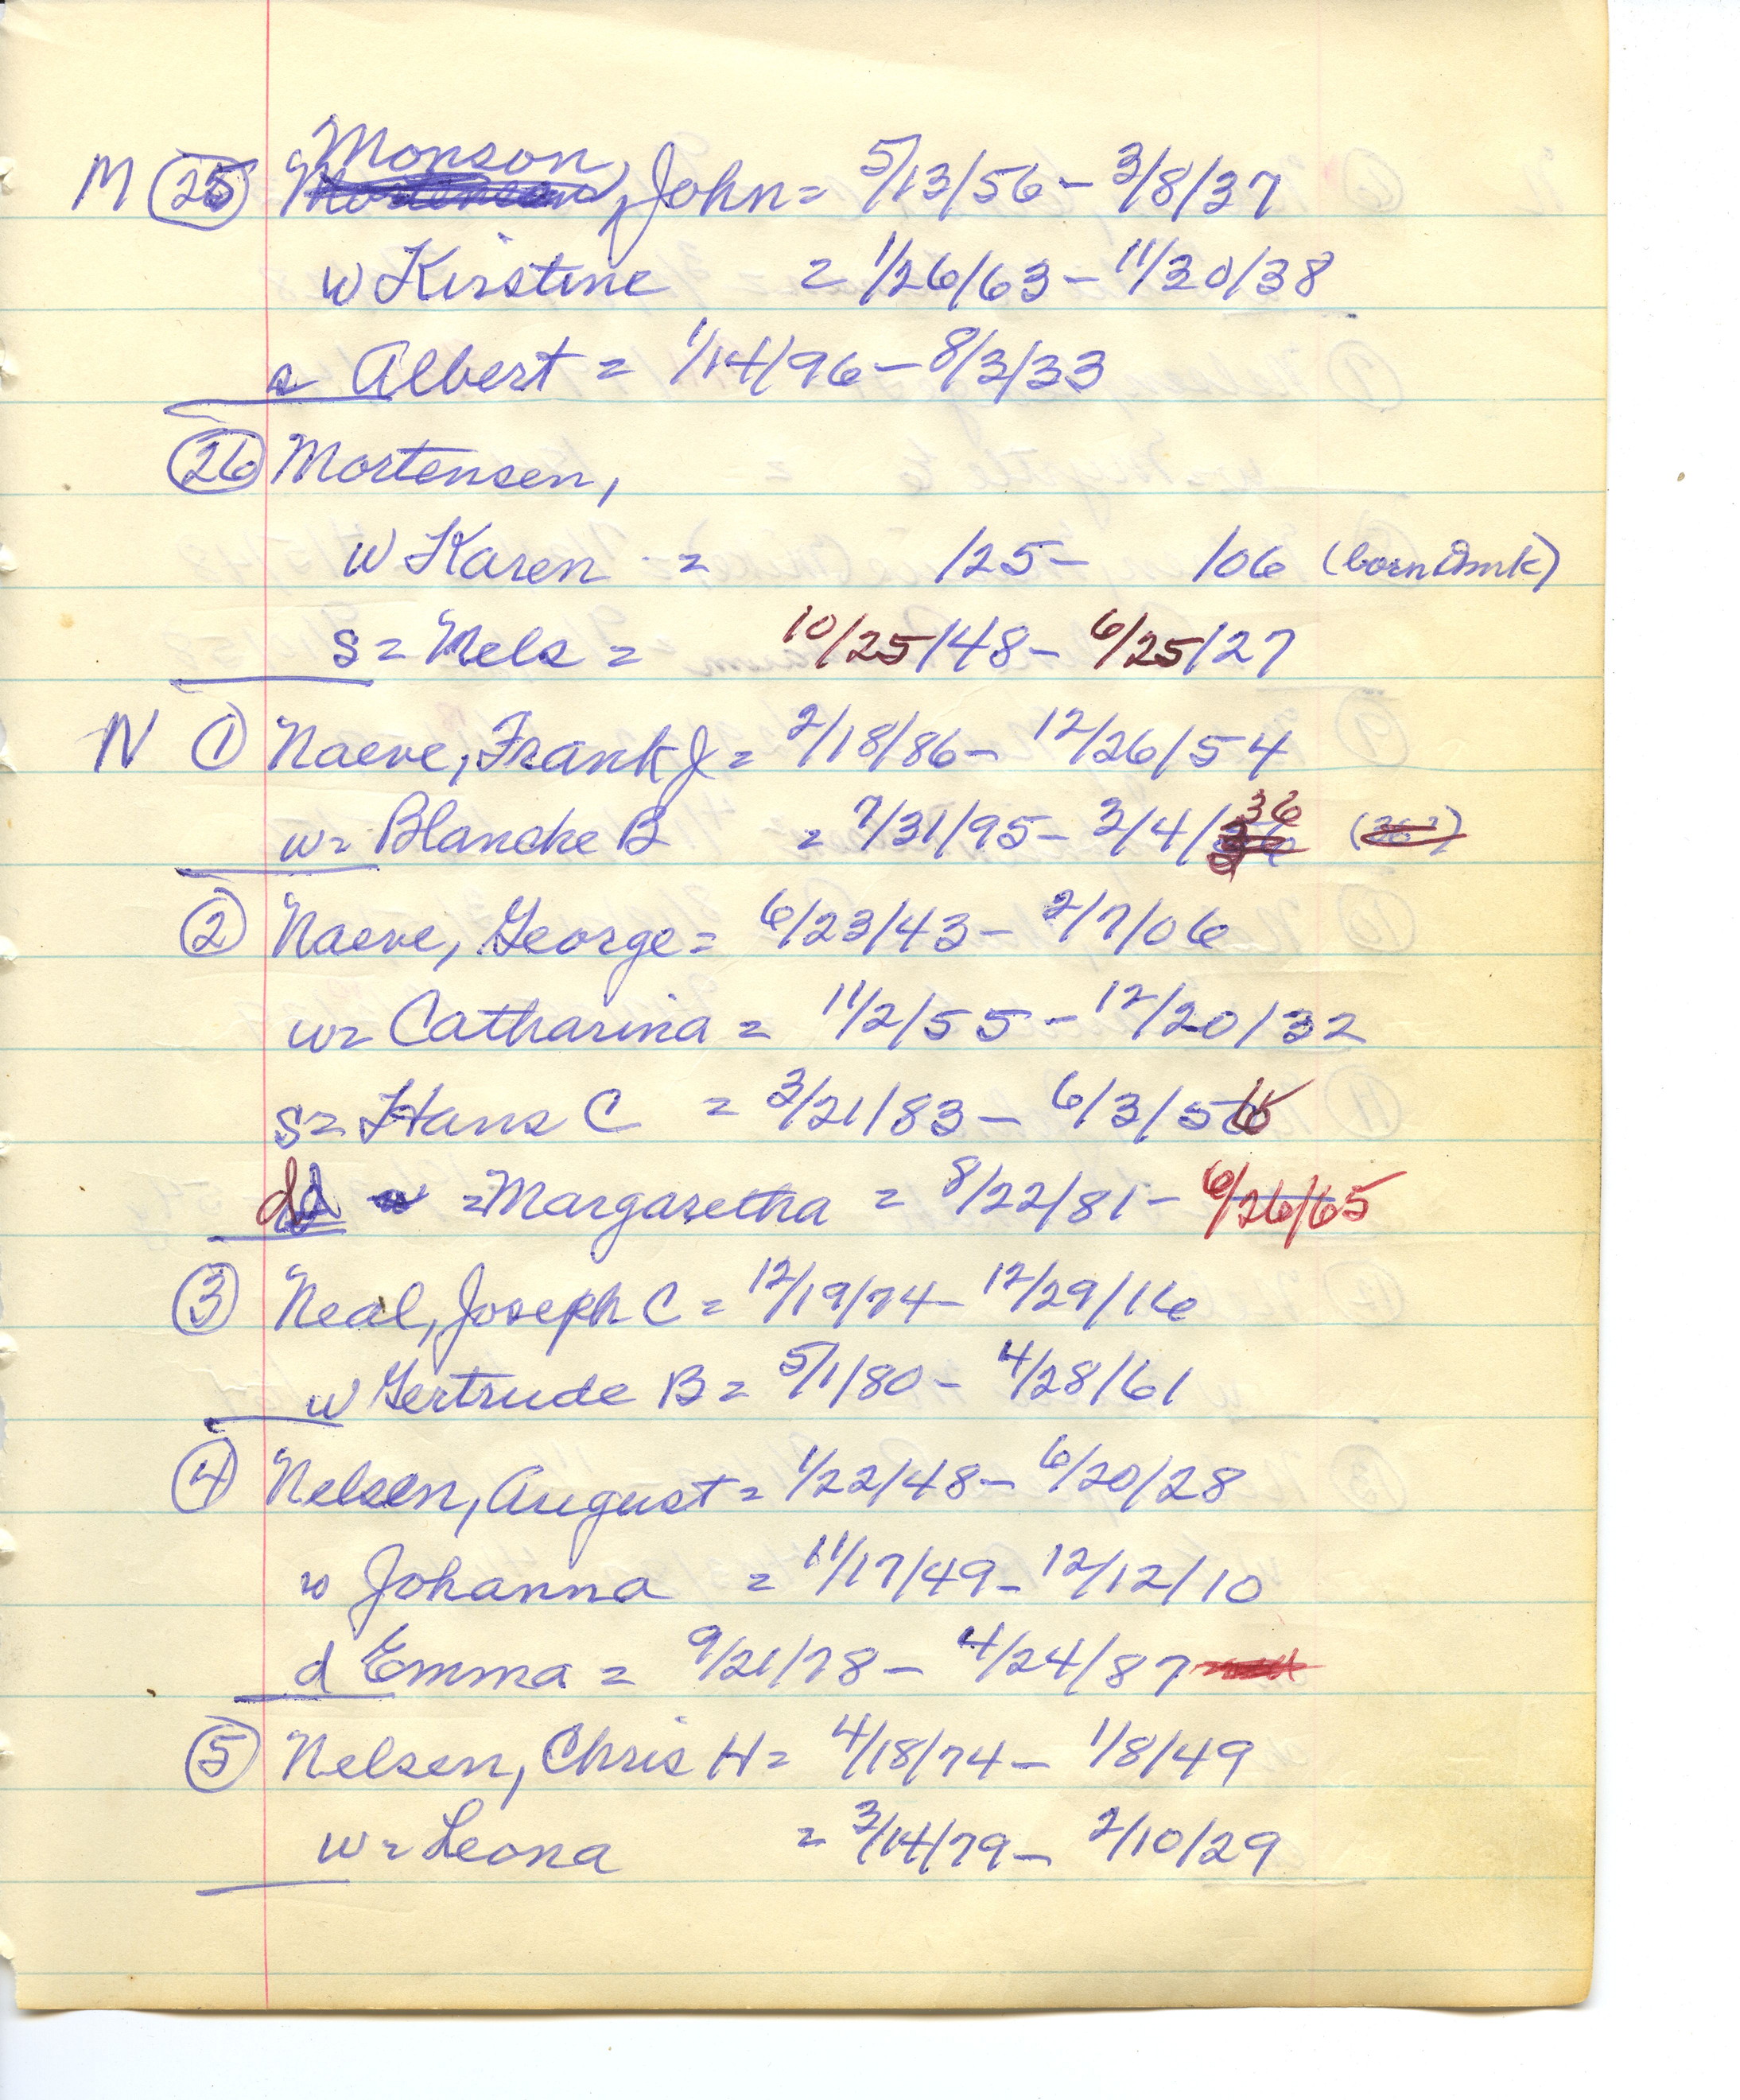 M 25 Monson, John = 5/13/56 - 3/8/37
w Kirstine = 1/26/63 - 11/20/38
s Albert = 1/14/96 - 8/3/33
26 Mortensen,
w Karen = /25 - /06 (born Dmk)
s = Nels = 10/25/48 - 6/25/27
N 1 Naeve, Frank J = 2/18/86 - 12/26/54
w = Blanche B = 7/31/95 - 3/4/36
2 Naeve, George = 6/23/43 - 2/7/06
w = Catharina = 11/2/55 - 12/20/32
s = Hans C = 3/21/83 - 6/3/56
d = Margaretha = 8/22/81 - 6/26/65
3 Neal, Joseph C = 12/19/74 - 12/29/16
w Gertrude B = 5/1/80 - 4/28/61
4 Nelsen, August = 1/22/48 - 6/20/28
w Johanna = 11/17/49 - 12/12/10
d Emma = 9/21/78 - 4/24/87
5 Nelsen, Chris H = 4/18/74 - 1/8/49
w = Leona = 3/14/79 - 2/10/29